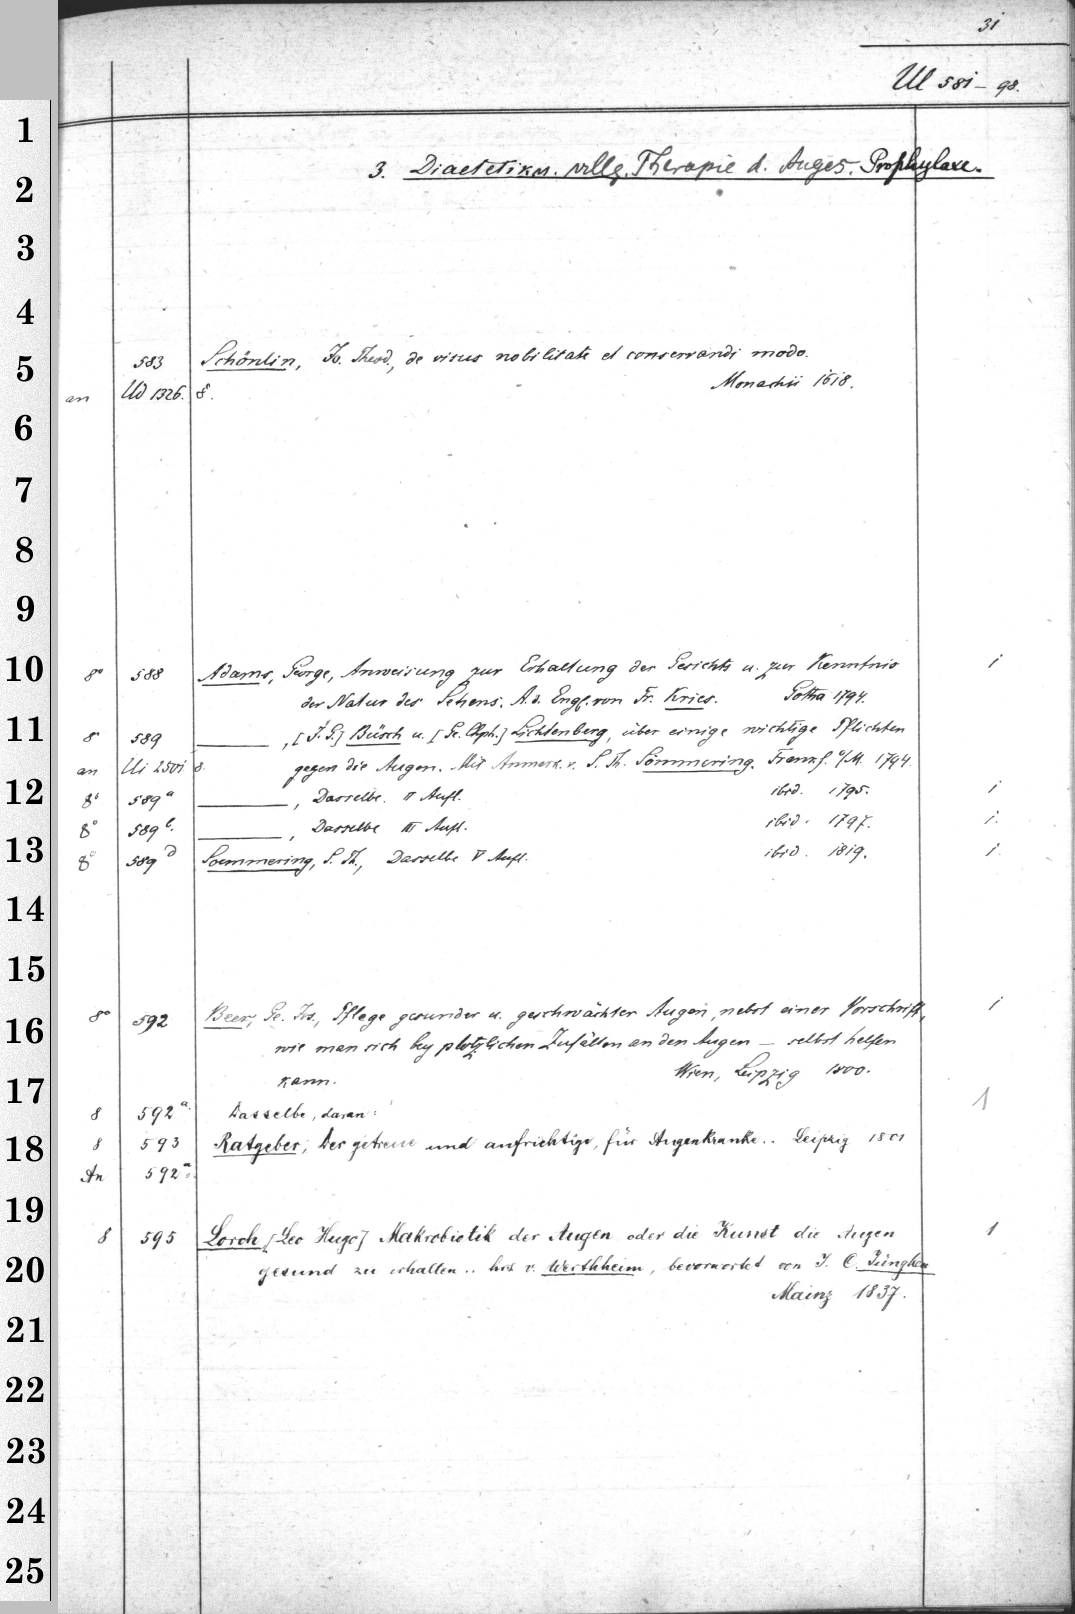 31
Ul 581-98.
3. Diaetetik u. Allg. Therapie d. Auges. Prophylaxe.
583 Schönlin, Jo. Theod., de visus nobilitate et conservandi modo.
an Ud 1326. 8. Monachii 1618.
8° 588 Adams, George, Anweisung zur Erhaltung der Gesichts u. zur Kenntnis 1
der Natur des Sehens. A. d. Engl. von Fr. Kries. Gotha 1794.
8° 589 ———, [J. G.] Büsch u. [Ge. Chph.] Lichtenberg, über einige wichtige Pflichten
an Ui 2501 8. gegen die Augen. Mit Anmerk. v. S. Th. Sömmering. Frankf. a/M. 1794.
8° 589a ———, Dasselbe. II Aufl. ibid. 1795. 1
8° 589b. ———, Dasselbe III Aufl. ibid. 1797. 1.
8° 589d Soemmering, S. Th., Dasselbe V Aufl. ibid. 1819. 1.
8° 592 Beer, Ge. Jos., Pflege gesunder u. geschwächter Augen, nebst einer Vorschrift, 1
wie man sich bey plötzlichen Zufällen an den Augen — selbst helfen
kann. Wien, Leipzig 1800.
8 592a. Dasselbe, daran: 1
8 593 Ratgeber, Der getreue und aufrichtige, für Augenkranke.. Leipzig 1801
An 592a.
8 595 Lorch [Leo Hugo] Makrobiotik der Augen oder die Kunst die Augen 1
gesund zu erhalten .. hrs v. Werthheim, bevorwortet von J. C. Jüngken
Mainz 1837.
1
2
3
4
5
6
7
8
9
10
11
12
13
14
15
16
17
18
19
20
21
22
23
24
25